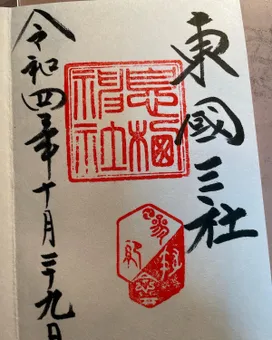 東國三社
息栖神社
令和四年十月二十九日